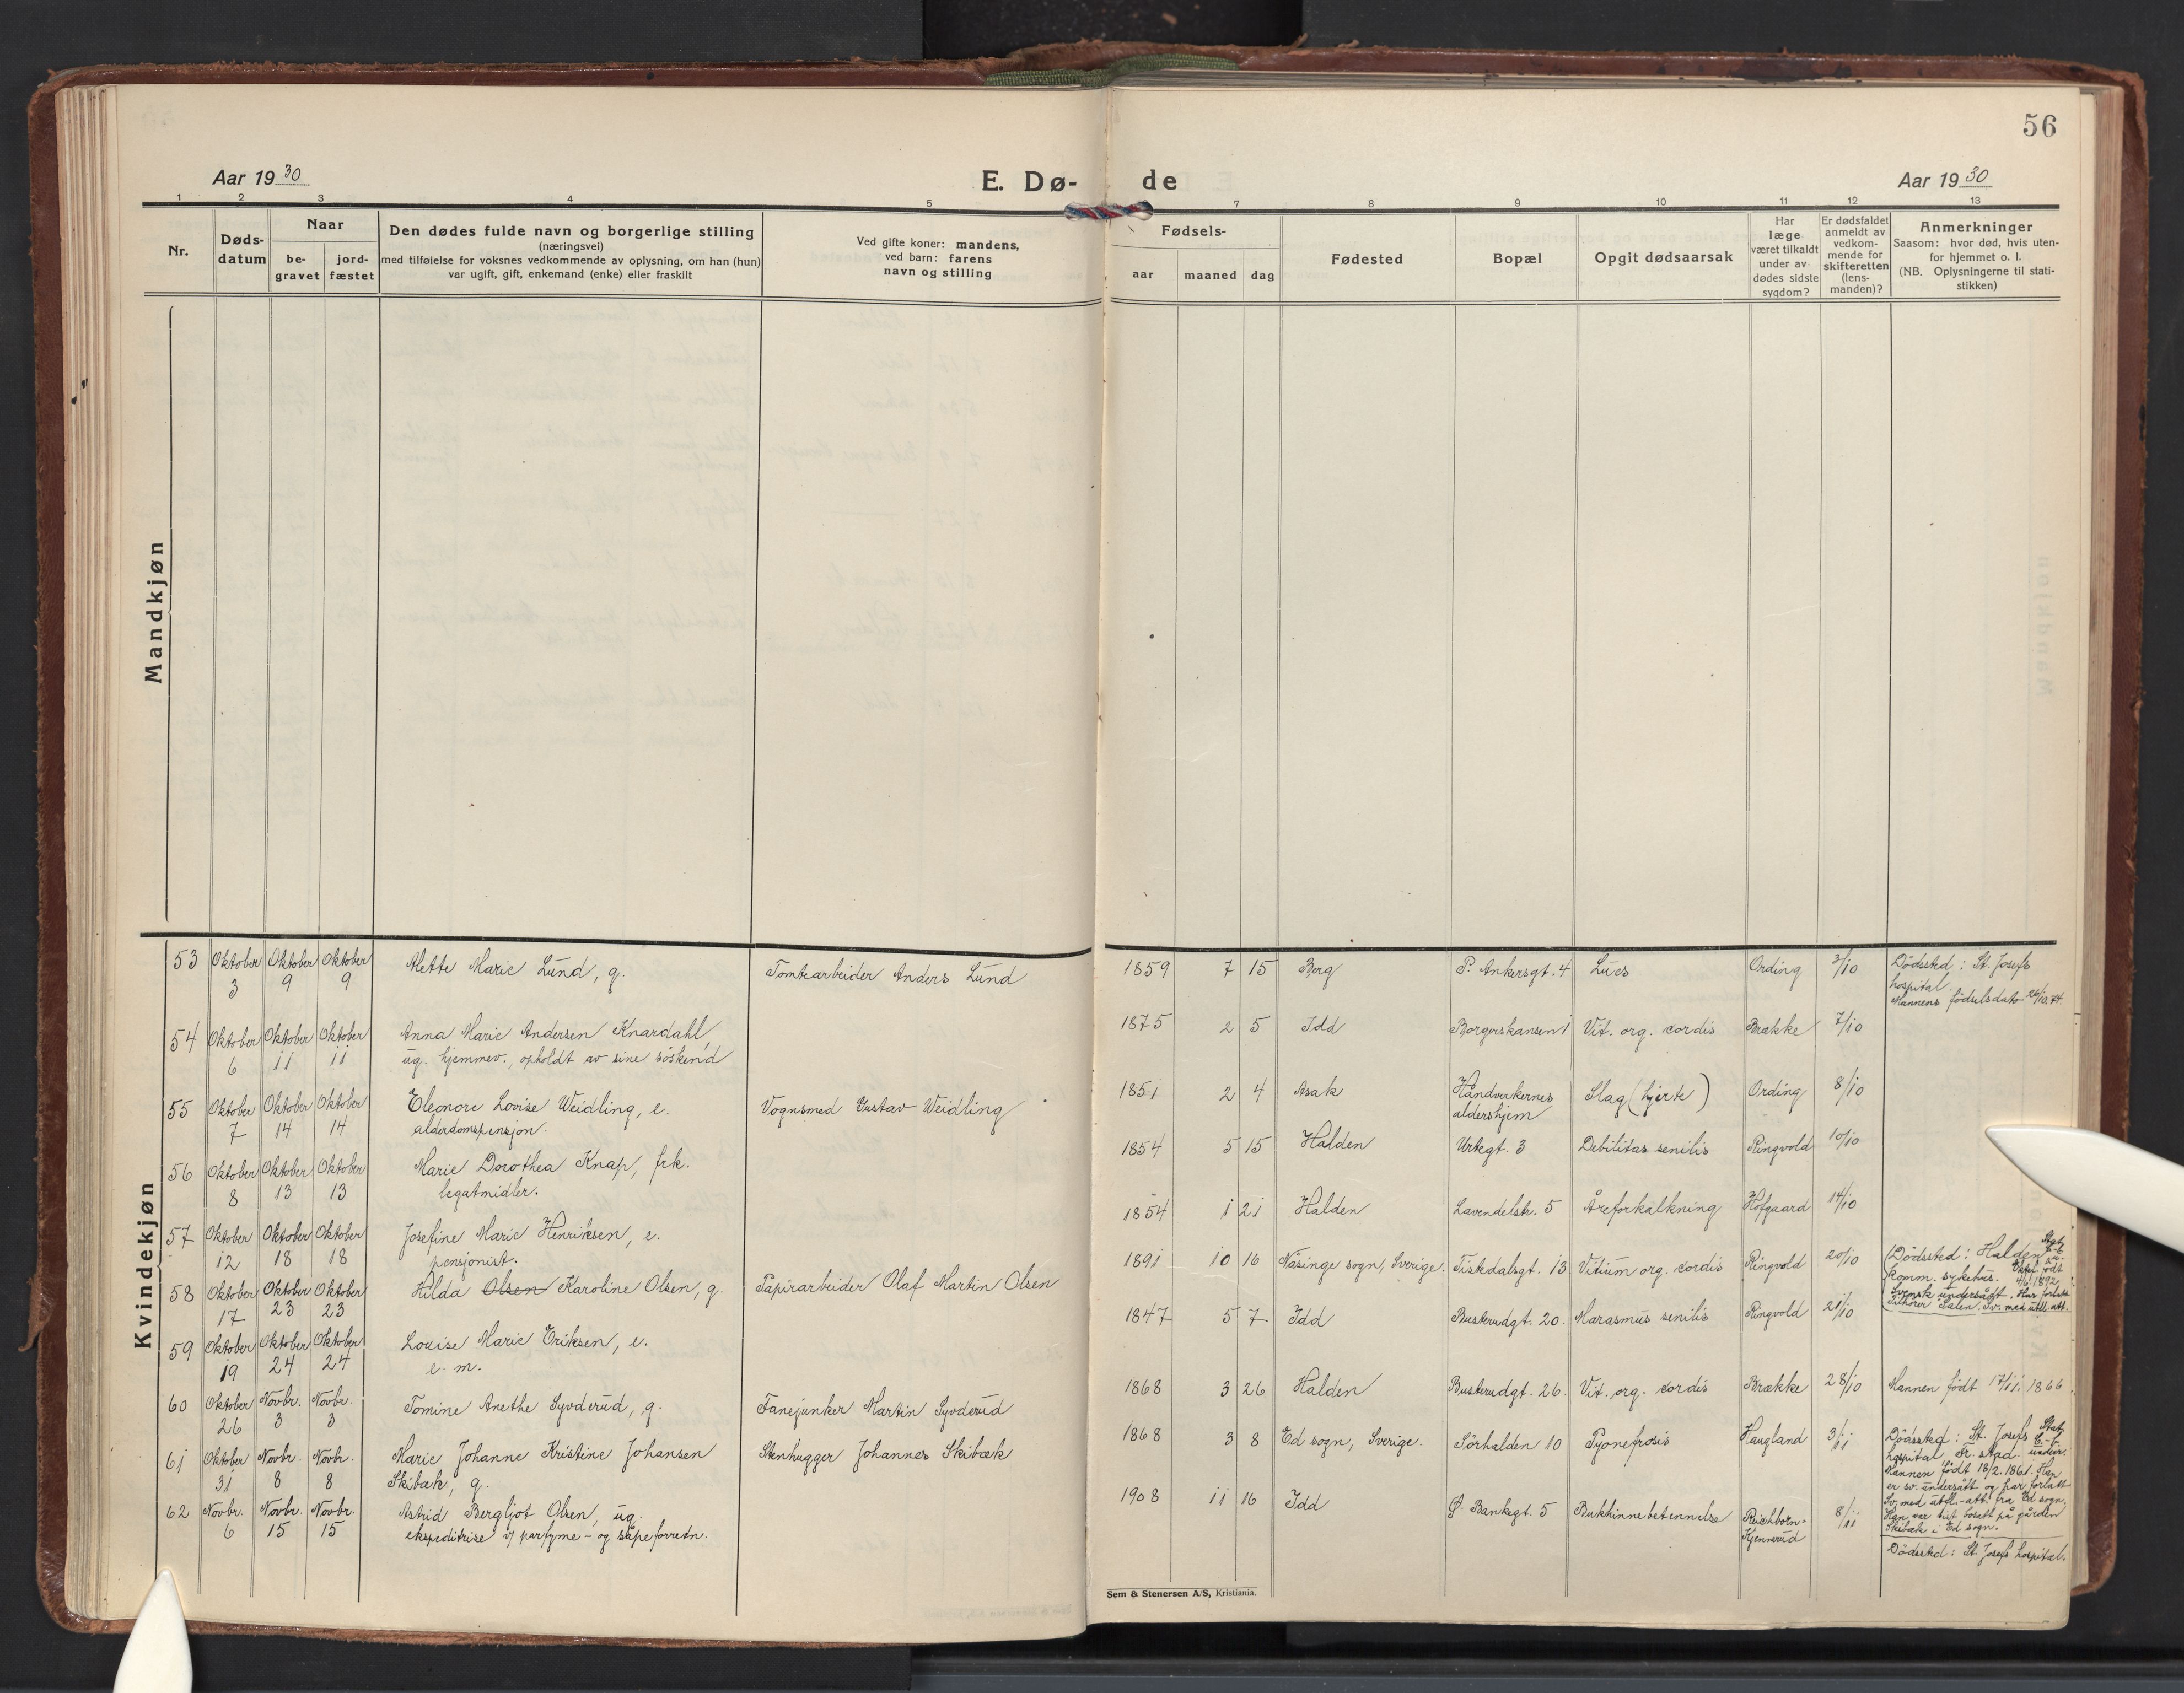 56
Aar 1930
E. Dø-
de
Aar 1930
1 2 3 4 5 7 8 9 10 11 12 13
Nr.
Døds-
datum
Naar
be-
gravet
jord-
fæstet
Den dødes fulde navn og borgerlige stilling
(næringsvei)
med tilføielse for voksnes vedkommende av oplysning, om han (hun)
var ugift, gift, enkemand (enke) eller fraskilt
Ved gifte koner: mandens,
ved barn: farens
navn og stilling
Fødsels-
aar maaned dag
Fødested
Bopæl
Opgit dødsaarsak
Har
læge
været tilkaldt
under av-
dødes sidste
sygdom?
Er dødsfaldet
anmeldt av
vedkom-
mende for
skifteretten
(lens-
manden)?
Anmerkninger
Saasom: hvor død, hvis uten-
for hjemmet o. l.
(NB. Oplysningerne til stati-
stikken)
Mandkjøn
Kvindekjøn
53 Oktober Oktober Oktober Alette Marie Lund, g. Tomtearbeider Anders Lund 1859 7 15 Berg P. Ankersgt. 4 Lues Ording 3/10 Dödssted: St. Josefs
3 9 9 hospital.
Mannens födselsdato 26/10.74.
54 Oktober Oktober Oktober Anna Marie Andersen Knardahl, 1875 2 5 Idd Borgerskansen 1 Vit. org. cordis Brække 7/10
6 11 11 ug. hjemmev., opholdt av sine söskend
55 Oktober Oktober Oktober Eleonore Lovise Weidling, e. Vognsmed Gustav Weidling 1851 2 4 Asak Håndverkernes Slag (hjerte) Ording 8/10
7 14 14 alderdomspensjon. aldershjem
56 Oktober Oktober Oktober Marie Dorothea Knap, frk. 1854 5 15 Halden Urtegt. 3 Debilitas senilis Ringvold 10/10
8 13 13 legatmidler.
57 Oktober Oktober Oktober Josefine Marie Henriksen, e. 1854 1 21 Halden Lavendelstr. 5 Åreforkalkning Hofgaard 14/10
12 18 18 pensjonist.
58 Oktober Oktober Oktober Hilda Olsen Karoline Olsen, g. Papirarbeider Olaf Martin Olsen 1891 10 16 Näsinge sogn, Sverige. Fiskdalsgt. 13 Vitium org. cordis Ringvold 20/10 Dödssted: Halden
17 23 23 komm. sykehus.
Svensk undersått.
59 Oktober Oktober Oktober Louise Marie Eriksen, e. 1847 5 7 Idd Busterudgt. 20. Marasmus senilis Ringvold 21/10
19 24 24 e. m.
60 Oktober Novbr. Novbr. Tomine Anethe Syvderud, g. Fanejunker Martin Syvderud 1868 3 26 Halden Busterudgt. 26. Vit. org. cordis Brække 28/10 Mannen födt 17/11. 1866.
26 3 3
61 Oktober Novbr. Novbr. Marie Johanne Kristine Johansen Stenhugger Johannes Skibæk 1868 3 8 Ed sogn, Sverige. Sörhalden 10 Pyonefrosis Haugland 3/11 Dödssted: St. Josefs
31 8 8 Skibæk, g. hospital Fr. stad.
Mannen födt 18/2. 1861. Han
er sv. undersått og har forlatt
Sv. med utfl.-att. fra Ed sogn.
Han var sist bosatt på gården
Skibæk i Ed sogn.
62 Novbr. Novbr. Novbr. Astrid Bergljot Olsen, ug. 1908 11 16 Idd Ø. Bankegt. 5 Bukhinnebetennelse Reichborn- 8/11 Dödssted: St. Josefs hospital.
6 15 15 ekspeditrise i parfyme- og såpeforretn. Kjennerud
Sem & Stenersen A/S, Kristiania.